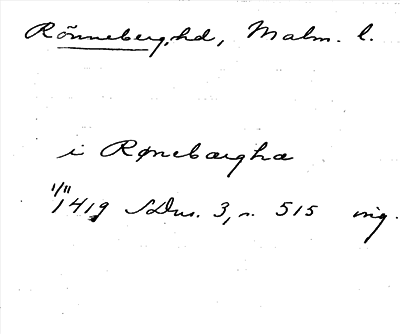 Rönneberg, hd, Malm. l.
i Rønebargha
1/11 1419 SDns. 3, s. 515 orig.